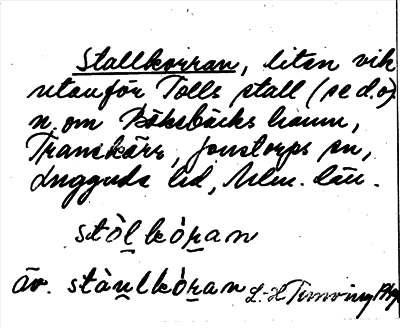 Stallkorran, liten vik
utanför Tolls stall (se d.o)
n. om Bäksbäcks hamn,
Tranekärr, Jonstorps sn,
Luggude hd, Mlm. län.
stòl̠kór̠an
äv. stàu̠lkór̠an L.-H